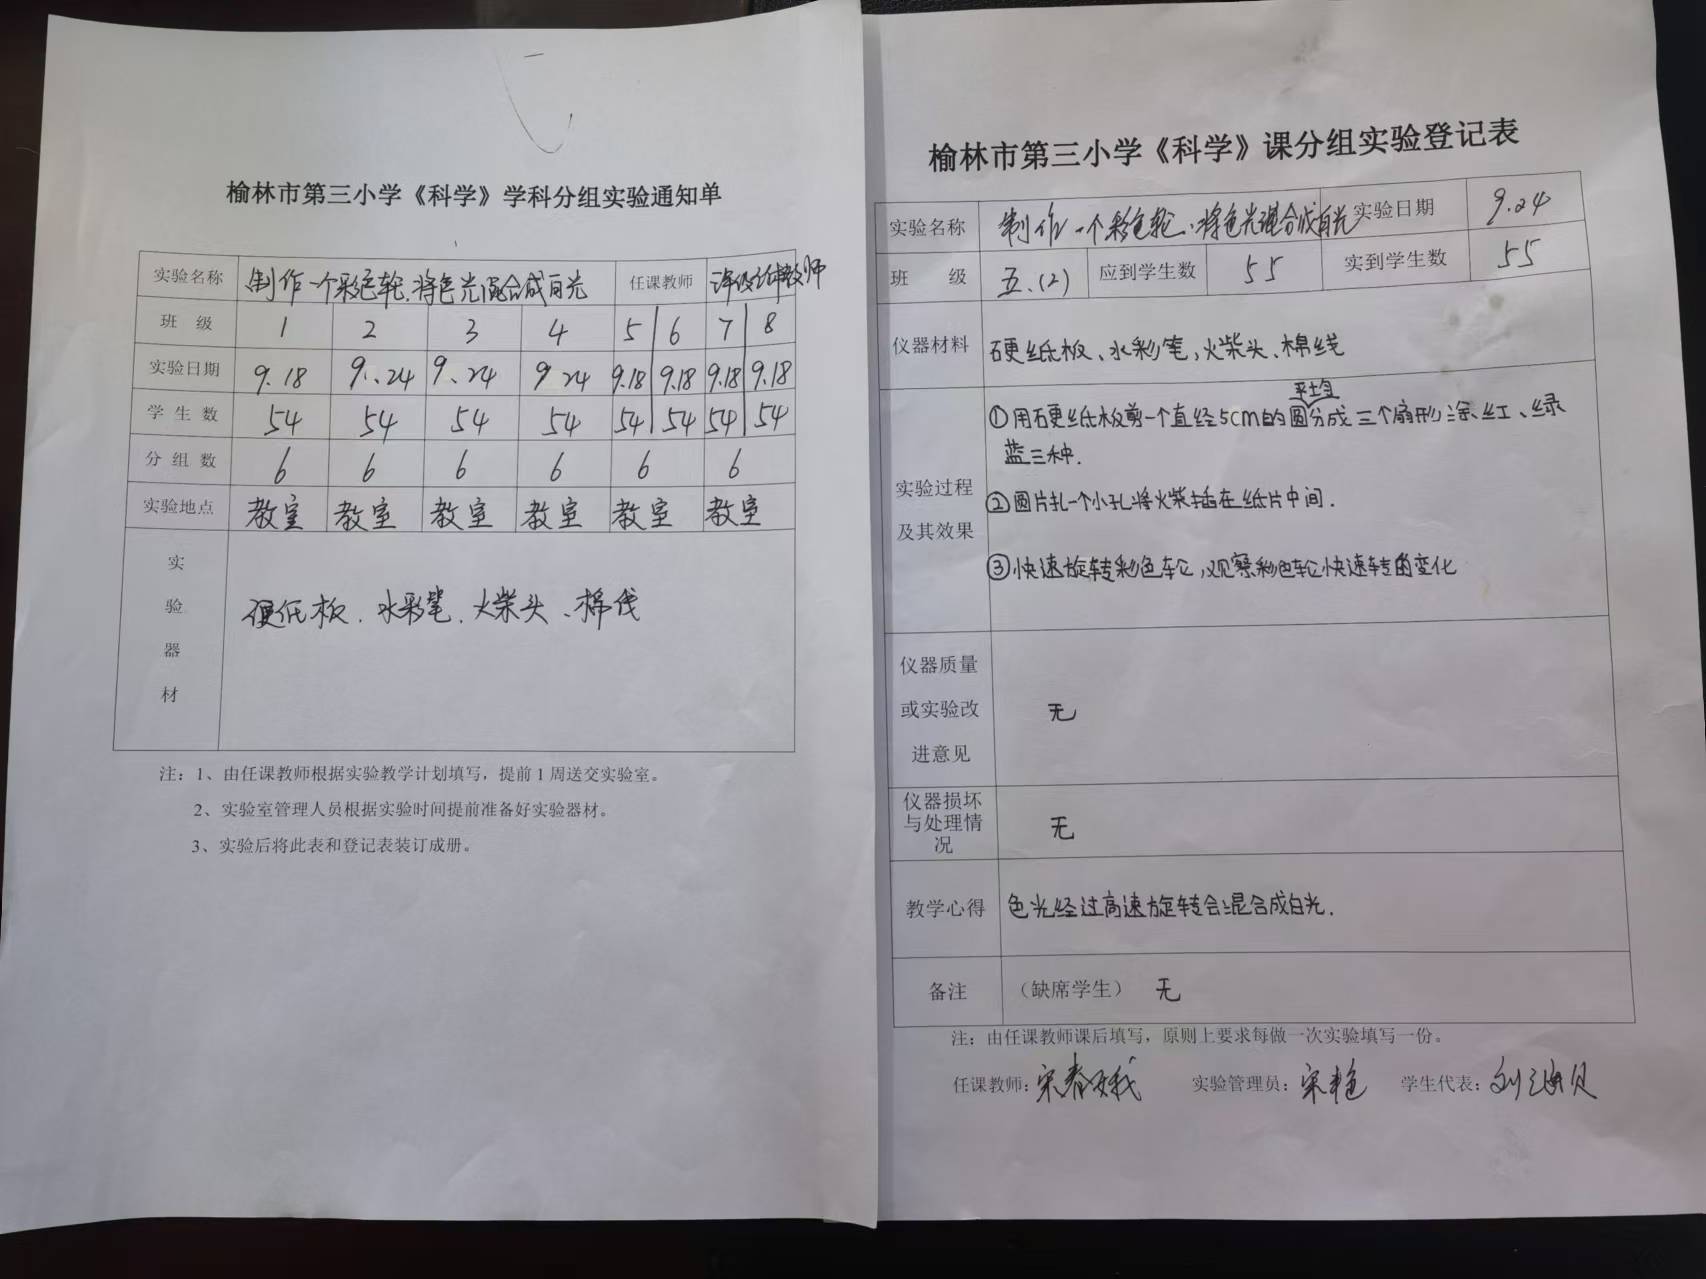 榆林市第三小学《科学》学科分组实验通知单
实验名称 制作一个彩色轮,将色光混合成白光 任课教师 任教师
班 级 1 2 3 4 5 6 7 8
实验日期 9.18 9.24 9.24 9.24 9.18 9.18 9.18 9.18
学 生 数 54 54 54 54 54 54 54 54
分 组 数 6 6 6 6 6 6
实验地点 教室 教室 教室 教室 教室 教室
实
验
器
材
硬纸板、水彩笔、火柴头、棉线
注：1、由任课教师根据实验教学计划填写，提前1周送交实验室。
2、实验室管理人员根据实验时间提前准备好实验器材。
3、实验后将此表和登记表装订成册。
榆林市第三小学《科学》课分组实验登记表
实验名称 制作一个彩色轮,将色光混合成白光 实验日期 9.24
班 级 五.(2) 应到学生数 55 实到学生数 55
仪器材料 硬纸板、水彩笔,火柴头、棉线
实验过程
及其效果
平均
①用硬纸板剪一个直径5cm的圆分成三个扇形涂红、绿
蓝三种.
②圆片扎一个小孔将火柴插在纸片中间.
③快速旋转彩色轮,观察彩色轮快速转的变化
仪器质量
或实验改
进意见
无
仪器损坏
与处理情
况
无
教学心得 色光经过高速旋转会混合成白光.
备注 （缺席学生） 无
注：由任课教师课后填写，原则上要求每做一次实验填写一份。
任课教师:宋春娥 实验管理员:宋艳 学生代表: